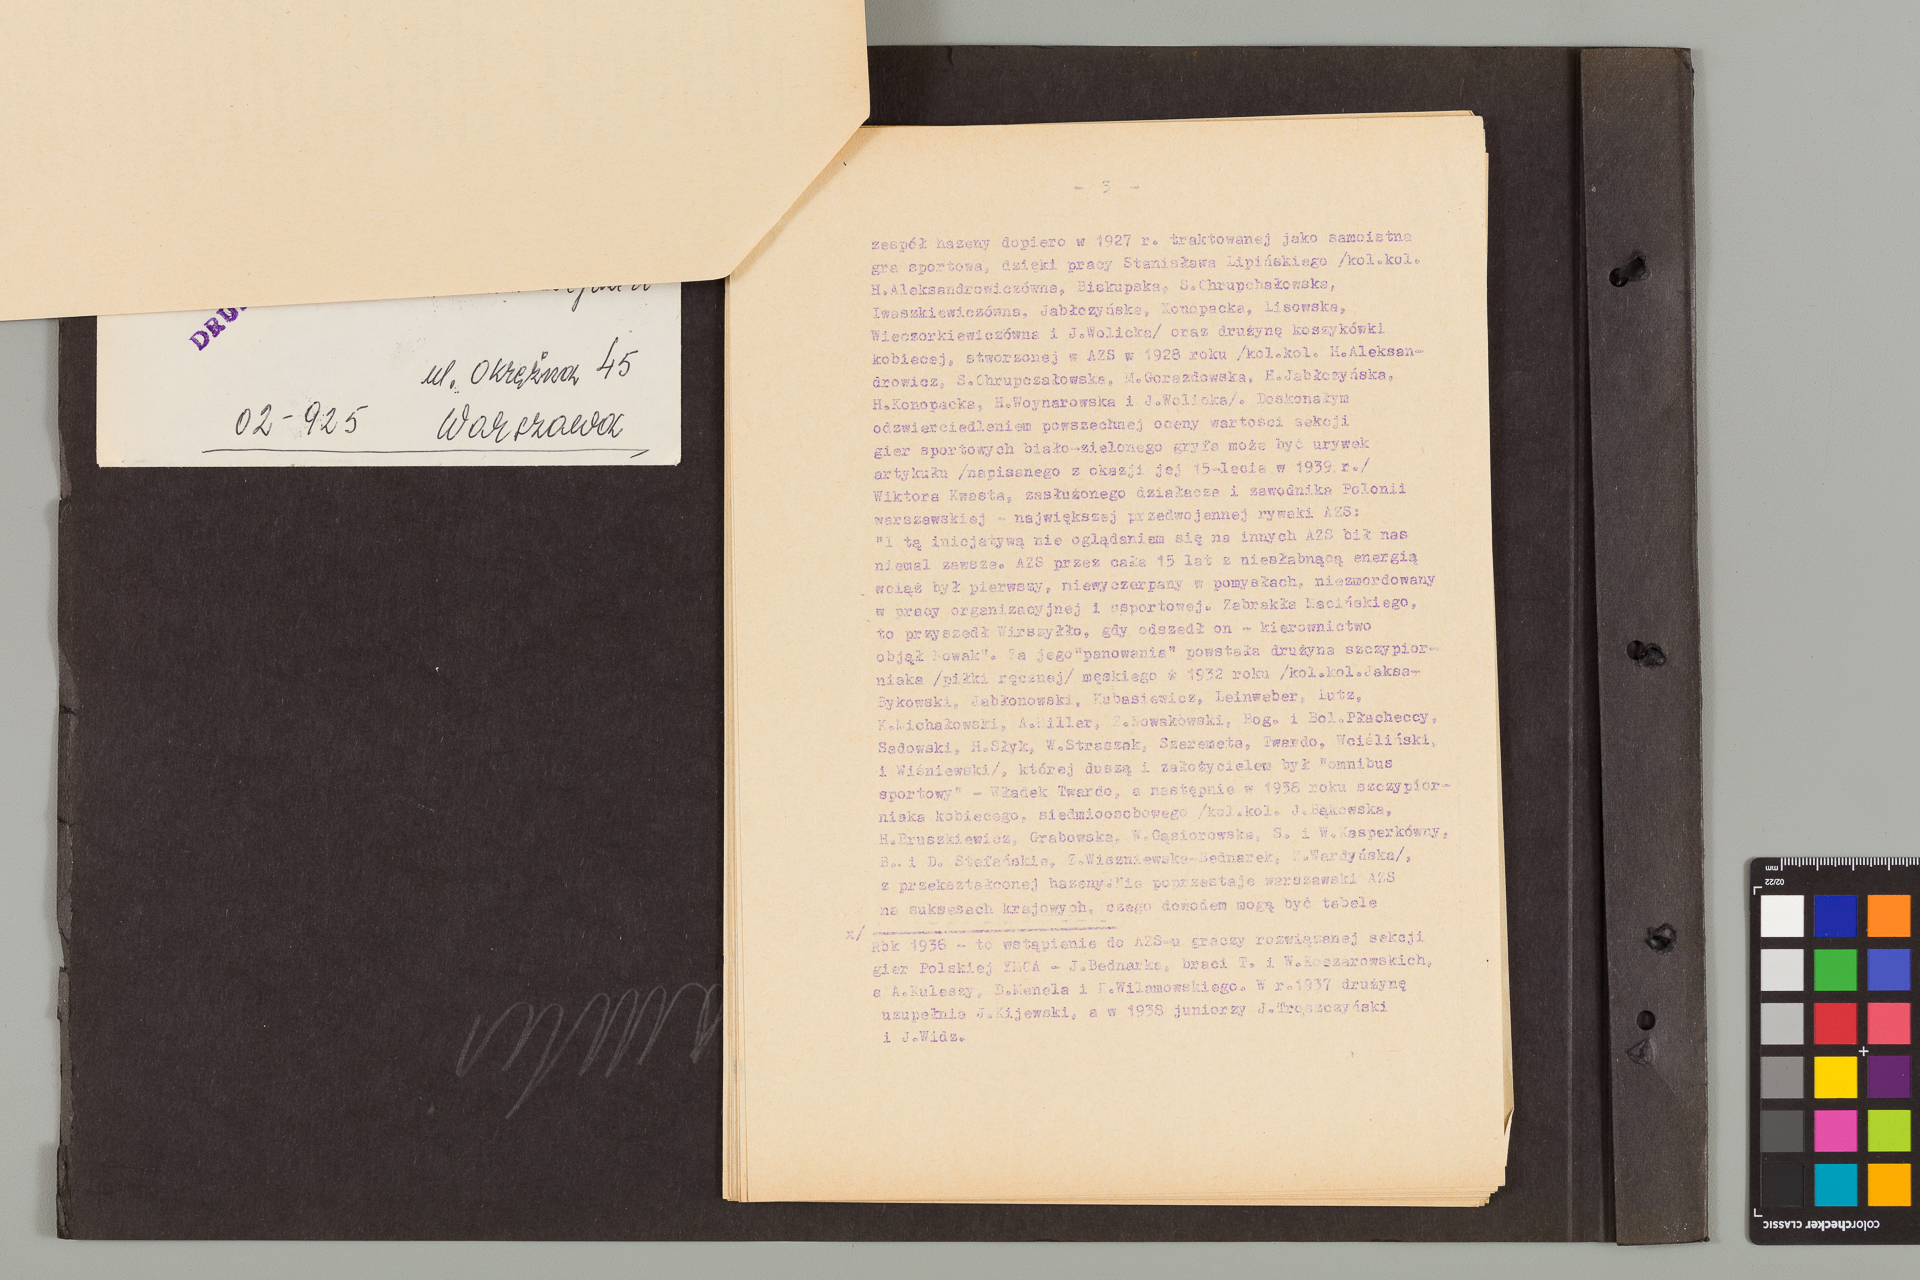 DRU
ul. Okrężna 45
02-925 Warszawa
- 3 -
zespół hazeny dopiero w 1927 r. traktowanej jako samoistna
gra sportowa, dzięki pracy Stanisława Lipińskiego /kol.kol.
H.Aleksandrowiczówna, Biskupska, S.Chrupchałowska,
Iwaszkiewiczówna, Jabłczyńska, Konopacka, Lisowska,
Wieczorkiewiczówna i J.Wolicka/ oraz drużynę koszykówki
kobiecej, stworzonej w AZS w 1928 roku /kol.kol. H.Aleksan-
drowicz, S.Chrupczałowska, M.Gorazdowska, H.Jabłczyńska,
H.Konopacka, H.Woynarowska i J.Wolicka/. Doskonałym
odzwierciedleniem powszechnej oceny wartości sekcji
gier sportowych biało-zielonego gryfa może być urywek
artykułu /napisanego z okazji jej 15-lecia w 1939 r./
Wiktora Kwasta, zasłużonego działacza i zawodnika Polonii
warszawskiej - największej przedwojennej rywalki AZS:
"I tą inicjatywą nie oglądaniem się na innych AZS bił nas
niemal zawsze. AZS przez całe 15 lat z niesłabnącą energią
wciąż był pierwszy, niewyczerpany w pomysłach, niezmordowany
w pracy organizacyjnej i ssportowej. Zabrakła Nacińskiego,
to przyszedł Wirszyłło, gdy odszedł on - kierownictwo
objął Nowak". Za jego"panowania" powstała drużyna szczypior-
niaka /piłki ręcznej/ męskiego w 1932 roku /kol.kol.Jaksa-
Bykowski, Jabłonowski, Kubasiewicz, Leinweber, Lutz,
K.Michałowski, A.Miller, Z.Nowakowski, Bog. i Bol.Płacheccy,
Sadowski, H.Słyk, W.Straszak, Szeremeta, Twardo, Wciśliński,
i Wiśniewski/, której duszą i założycielem był "omnibus
sportowy" - Władek Twardo, a następnie w 1938 roku szczypior-
niaka kobiecego, siedmioosobowego /kol.kol. J.Bąkowska,
H.Bruszkiewicz, Grabowska, W.Gąsiorowska, S. i W.Kasperkówny,
B. i D. Stefańskie, Z.Wiszniewska-Bednarek, K.Wardyńska/,
z przekształconej hazeny.Nie poprzestaje warszawski AZS
na sukcesach krajowych, czego dowodem mogą być tabele
x/ Rok 1936 - to wstąpienie do AZS-u graczy rozwiązanej sekcji
gier Polskiej YMCA - J.Bednarka, braci T. i W.Roszarowskich,
a A.Kuleszy, B.Manela i Wilamowskiego. W r.1937 drużynę
uzupełnia J.Kijewski, a w 1938 juniorzy J.Trąszczyński
i J.Widz.
colorchecker CLASSIC
mm
02/22